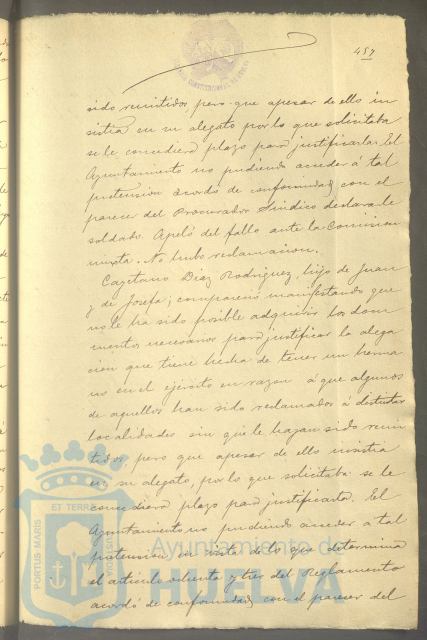 457
sido remitidos pero que apesar de ello in
sistia en su alegato por lo que solicitaba
se le concediera plazo para justificarla. El
Ayuntamiento no pudiendo acceder á tal
pretension acordó de conformidad con el
parecer del Procurador Sindico declararle
soldado. Apeló del fallo ante la Comision
mixta. No hubo reclamacion.
Cayetano Diaz Rodriguez, hijo de Juan
y de Josefa; compareció manifestando que
no le ha sido posible adquirir los docu
mentos necesarios para justificar la alega
cion que tiene hecha de tener un herma
no en el ejército en razon á que algunos
de aquellos han sido reclamados á distintas
localidades sin que le hayan sido remi
tidos pero que apesar de ello insistia
en su alegato, por lo que solicitaba se le
concediera plazo para justificarla. El
Ayuntamiento no pudiendo acceder á tal
pretension en vista de lo que determina
el articulo ochenta y tres del Reglamento
acordó de conformidad con el parecer del
PORTUS MARIS
ET TERRAE
CUSTODIA
Ayuntamiento de
HUELVA